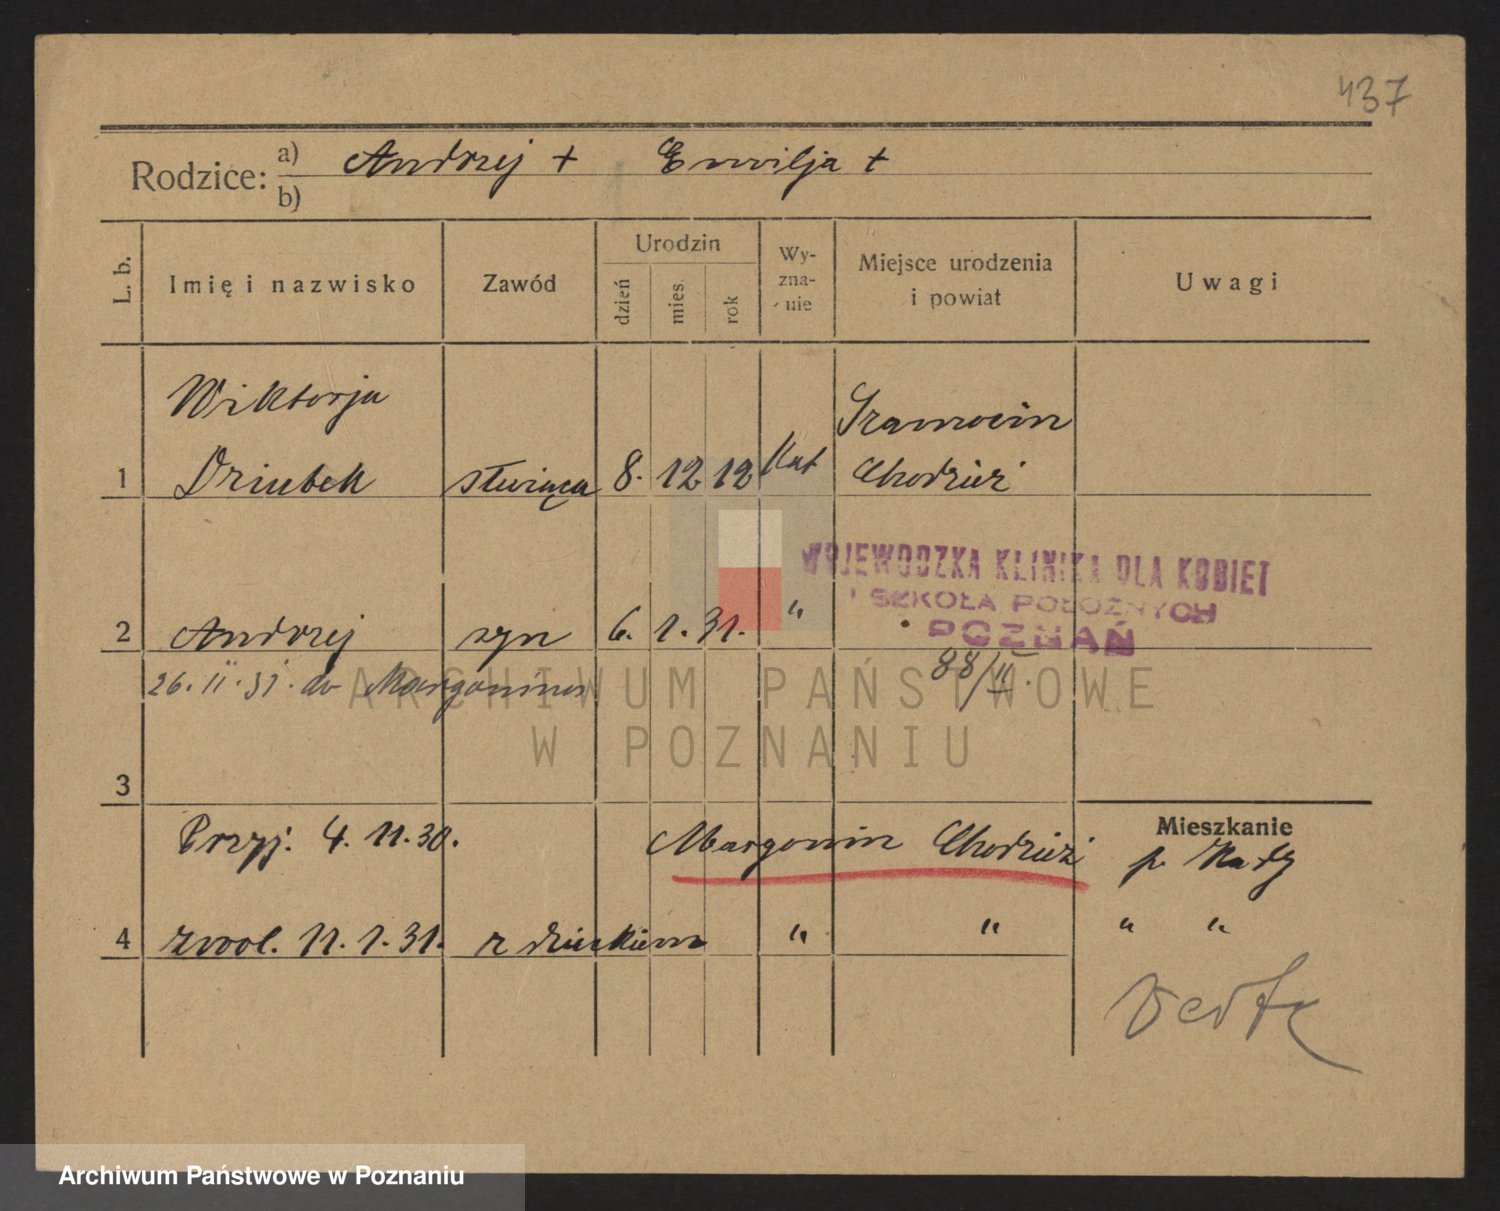 437
Rodzice: a) Andrzej + Emilja +
b)
L. b. Imię i nazwisko Zawód Urodzin dzień mies. rok Wy-zna-nie Miejsce urodzenia i powiat Uwagi
Wiktorja Szamocin
1 Dziubek służąca 8. 12 12 Kat Chodzież
WOJEWODZKA KLINIKA DLA KOBIET
I SZKOŁA POŁOŻNYCH
POZNAŃ
2 Andrzej syn 6. 1. 31. "
88/II.
26. II. 31. do Margonina
ARCHIWUM PAŃSTWOWE
W POZNANIU
3
Mieszkanie
Przyj. 4. 11. 30. Margonin Chodzież p.
4 zwol. 11. 1. 31. z dzieckiem " " " "
Archiwum Państwowe w Poznaniu